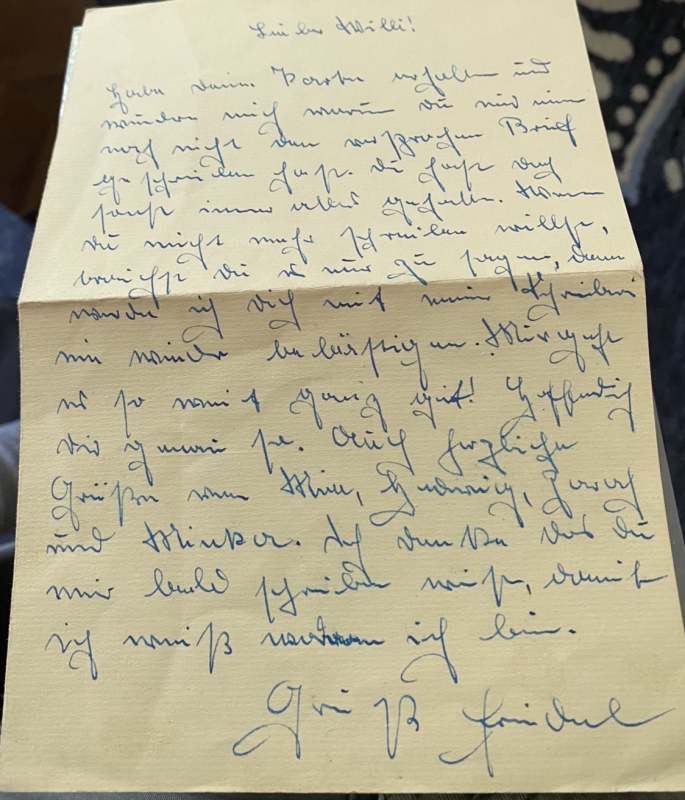 Lieber Willi!
Habe deine Karte erhalten und
wundre mich warum du mir nun
noch nicht den versprochen Brief
geschrieben hast. du hast doch
sonst immer alles gehalten. Wenn
du nicht mehr schreiben willst,
brauchst du es nur zu sagen, dann
werde ich dich mit meiner Schreiberei
nie wieder belästigen. Mir geht
es so weit ganz gut! Hoffendlich
dir genau so. Auch herzliche
Grüße von
und Ich denke das du
mir bald schreiben wirst, damit
ich weiß ich bin.
Gruß Friedel